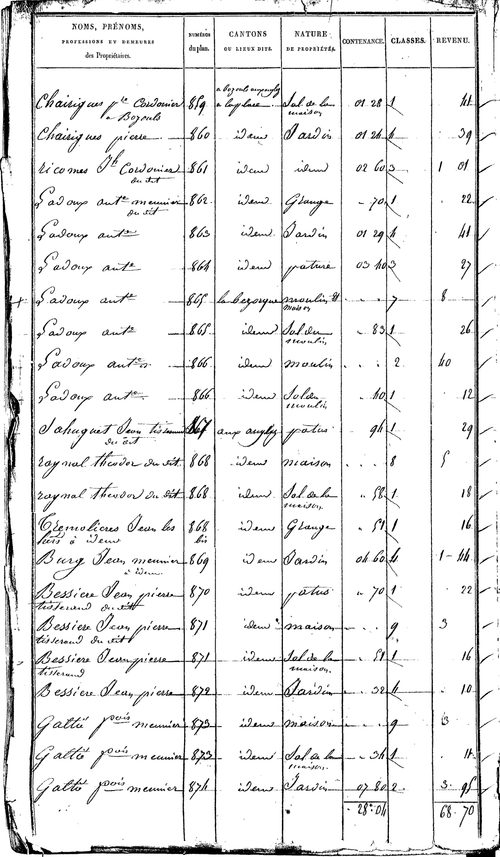 NOMS, PRÉNOMS, PROFESSIONS ET DEMEURES des Propriétaires. NUMÉROS du plan. CANTONS OU LIEUX DITS. NATURE DE PROPRIÉTÉS. CONTENANCE. CLASSES. REVENU.
Chairigues pre Cordonier a Bozouls 859 a la place Sol de la maison 01 28 1 41
Chairigues pierre 860 idem Jardin 01 24 4 39
ricomes Jh Cordonier du dit 861 idem idem 02 60 3 1 01
Ladoux ante meunier du dit 862 idem Grange 70 1 22
Ladoux ante 863 idem Jardin 01 29 4 41
Ladoux ante 864 idem pature 03 40 3 27
Ladoux ante 865 moulin et maison 7 8
Ladoux ante 865 idem Sol du moulin 83 1 26
Ladoux ante 866 idem moulin 2 40
Ladoux ante 866 idem Sol du moulin 40 1 12
Sahuguet Jean tisserand du dit 867 patus 94 1 29
raynal theodor du dit 868 idem maison 8 5
raynal theodor du dit 868 idem Sol de la maison 58 1 18
Tremolieres Jean les hers à idem 868 bis idem Grange 51 1 16
Burg Jean meunier à idem 869 idem Jardin 04 60 4 1 44
Bessiere Jean pierre tisserand du dit 870 idem patus 70 1 22
Bessiere Jean pierre tisserand du dit 871 idem maison 9 3
Bessiere Jean pierre tisserand 871 idem Sol de la maison 51 1 16
Bessiere Jean pierre 872 idem Jardin 32 4 10
Galtié pois meunier 873 idem maison 9 3
Galtié pois meunier 873 idem Sol de la maison 34 1 11
Galtié pois meunier 874 idem Jardin 07 80 2 3 95
28 04 68 70